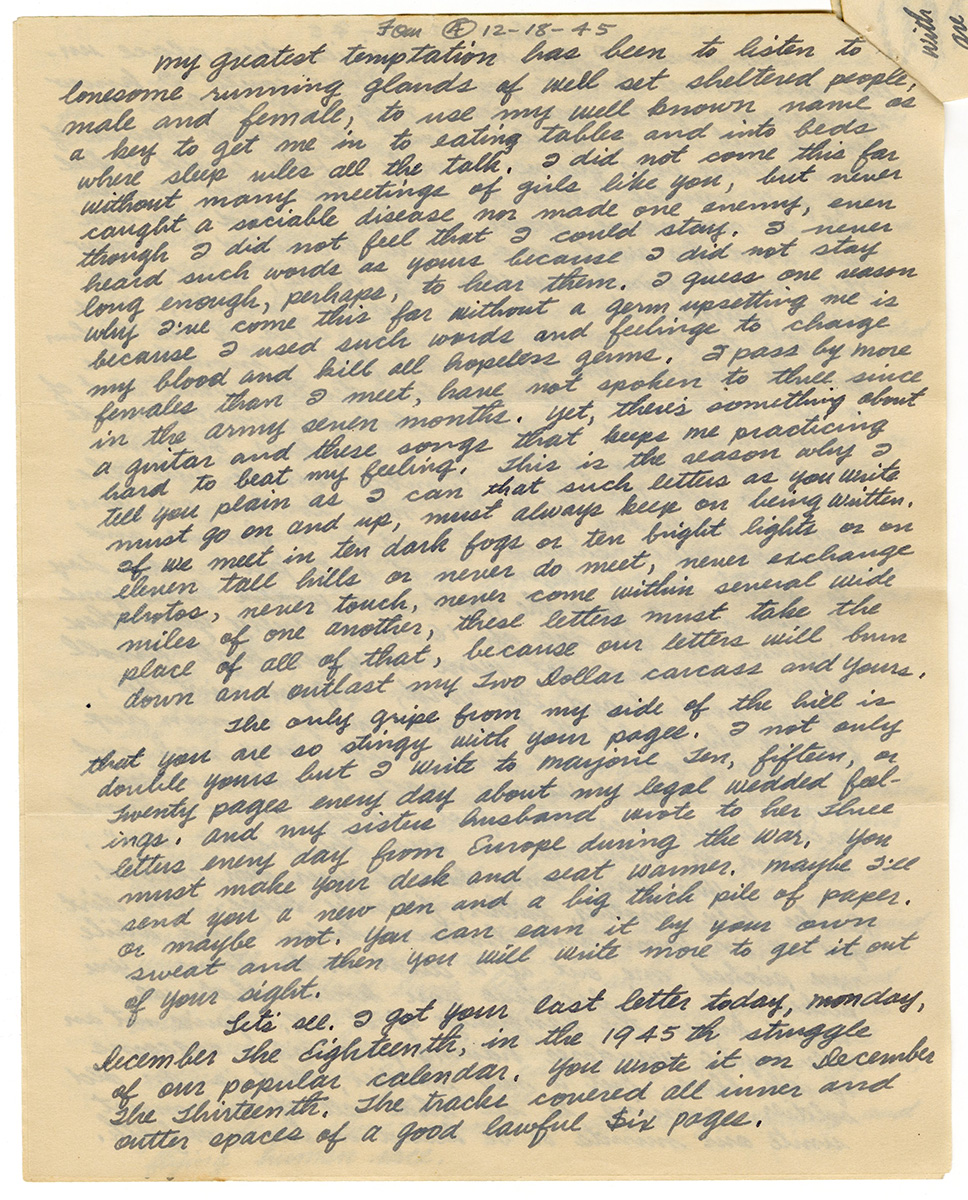 Four (A) 12-18-45
with
are
My greatest temptation has been to listen to
lonesome running glands of well set sheltered people,
male and female, to use my well known name as
a key to get me in to eating tables and into beds
where sleep rules all the talk. I did not come this far
without many meetings of girls like you, but never
caught a sociable disease nor made one enemy, even
though I did not feel that I could stay. I never
heard such words as yours because I did not stay
long enough, perhaps, to hear them. I guess one reason
why I've come this far without a germ upsetting me is
because I used such words and feelings to charge
my blood and kill all hopeless germs. I pass by more
females than I meet, have not spoken to three since
in the army seven months. Yet, there's something about
a guitar and these songs that keeps me practicing
hard to beat my feeling. This is the reason why I
tell you plain as I can that such letters as you write
must go on and up, must always keep on being written.
If we meet in ten dark fogs or ten bright lights or on
eleven tall hills or never do meet, never exchange
photos, never touch, never come within several wide
miles of one another, these letters must take the
place of all of that, because our letters will burn
down and outlast my Two Dollar carcass and yours.
The only gripe from my side of the hill is
that you are so stingy with your pages. I not only
double yours but I write to Marjorie Ten, fifteen, or
Twenty pages every day about my legal wedded feel-
ings. And my sisters husband wrote to her Three
letters every day from Europe during the war. You
must make your desk and seat warmer. Maybe I'll
send you a new pen and a big thick pile of paper.
Or maybe not. You can earn it by your own
sweat and then you will write more to get it out
of your sight.
Let's see. I got your last letter today, Monday,
December The Eighteenth, in the 1945th struggle
of our popular calendar. You wrote it on December
The Thirteenth. The tracks covered all inner and
outter spaces of a good lawful Six pages.